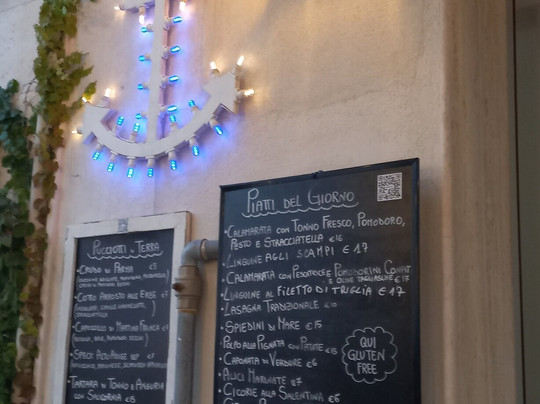 PIATTI DEL GIORNO
• CALAMARATA CON TONNO FRESCO, POMODORO,
PESTO E STRACCIATELLA €16
• LINGUINE AGLI SCAMPI € 17
• CALAMARATA CON PESCATRICE E POMODORINI CONFIT
E OLIVE TAGGIASCHE €17
• LINGUINE AL FILETTO DI TRIGLIA € 17
• LASAGNA TRADIZIONALE €10
• SPIEDINI DI MARE €15
• POLPO ALLA PIGNATA CON PATATE €15
• CAPONATA DI VERDURE €6
• ALICI MARINATE €7
• CICORIE ALLA SALENTINA €6
QUI
GLUTEN
FREE
PUCCIOTTI DI TERRA
• CRUDO DI PARMA
• COTTO ARROSTO ALLE ERBE €7
• CAPOCOLLO DI MARTINA FRANCA
• SPECK ALTO ADIGE IGP €7
• TARTARA DI TONNO E ANGURIA
CON SALICORNIA €15